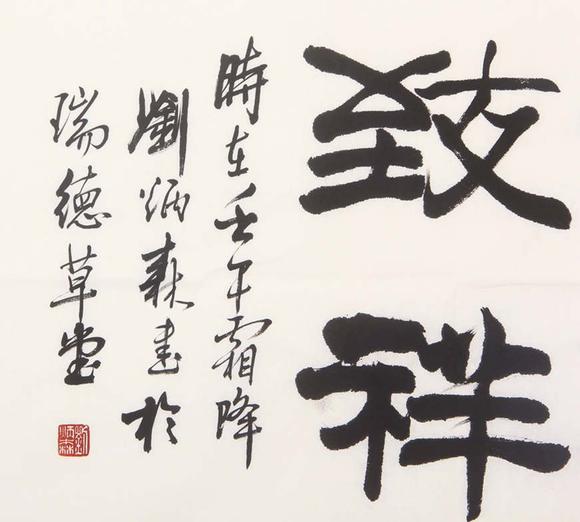 致祥
時在壬午霜降
劉炳森書於
瑞德草堂
劉炳森